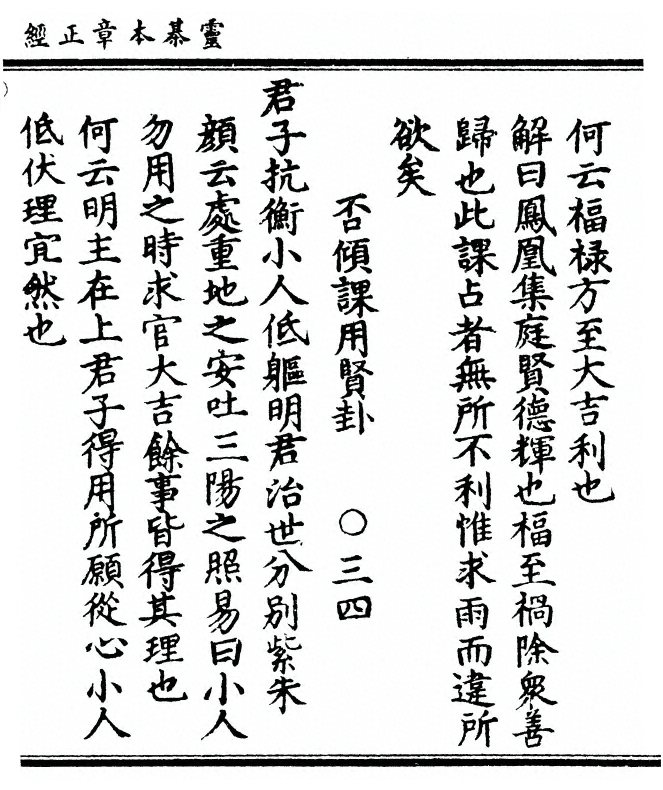 靈棊本章正經
何云福祿方至大吉利也
解曰鳳凰集庭賢德輝也福至禍除衆善
歸也此課占者無所不利惟求雨而違所
欲矣
否傾課用賢卦　〇三四
君子抗衡小人低軀明君治世分別紫朱
顔云處重地之安吐三陽之照易曰小人
勿用之時求官大吉餘事皆得其理也
何云明主在上君子得用所願從心小人
低伏理宜然也